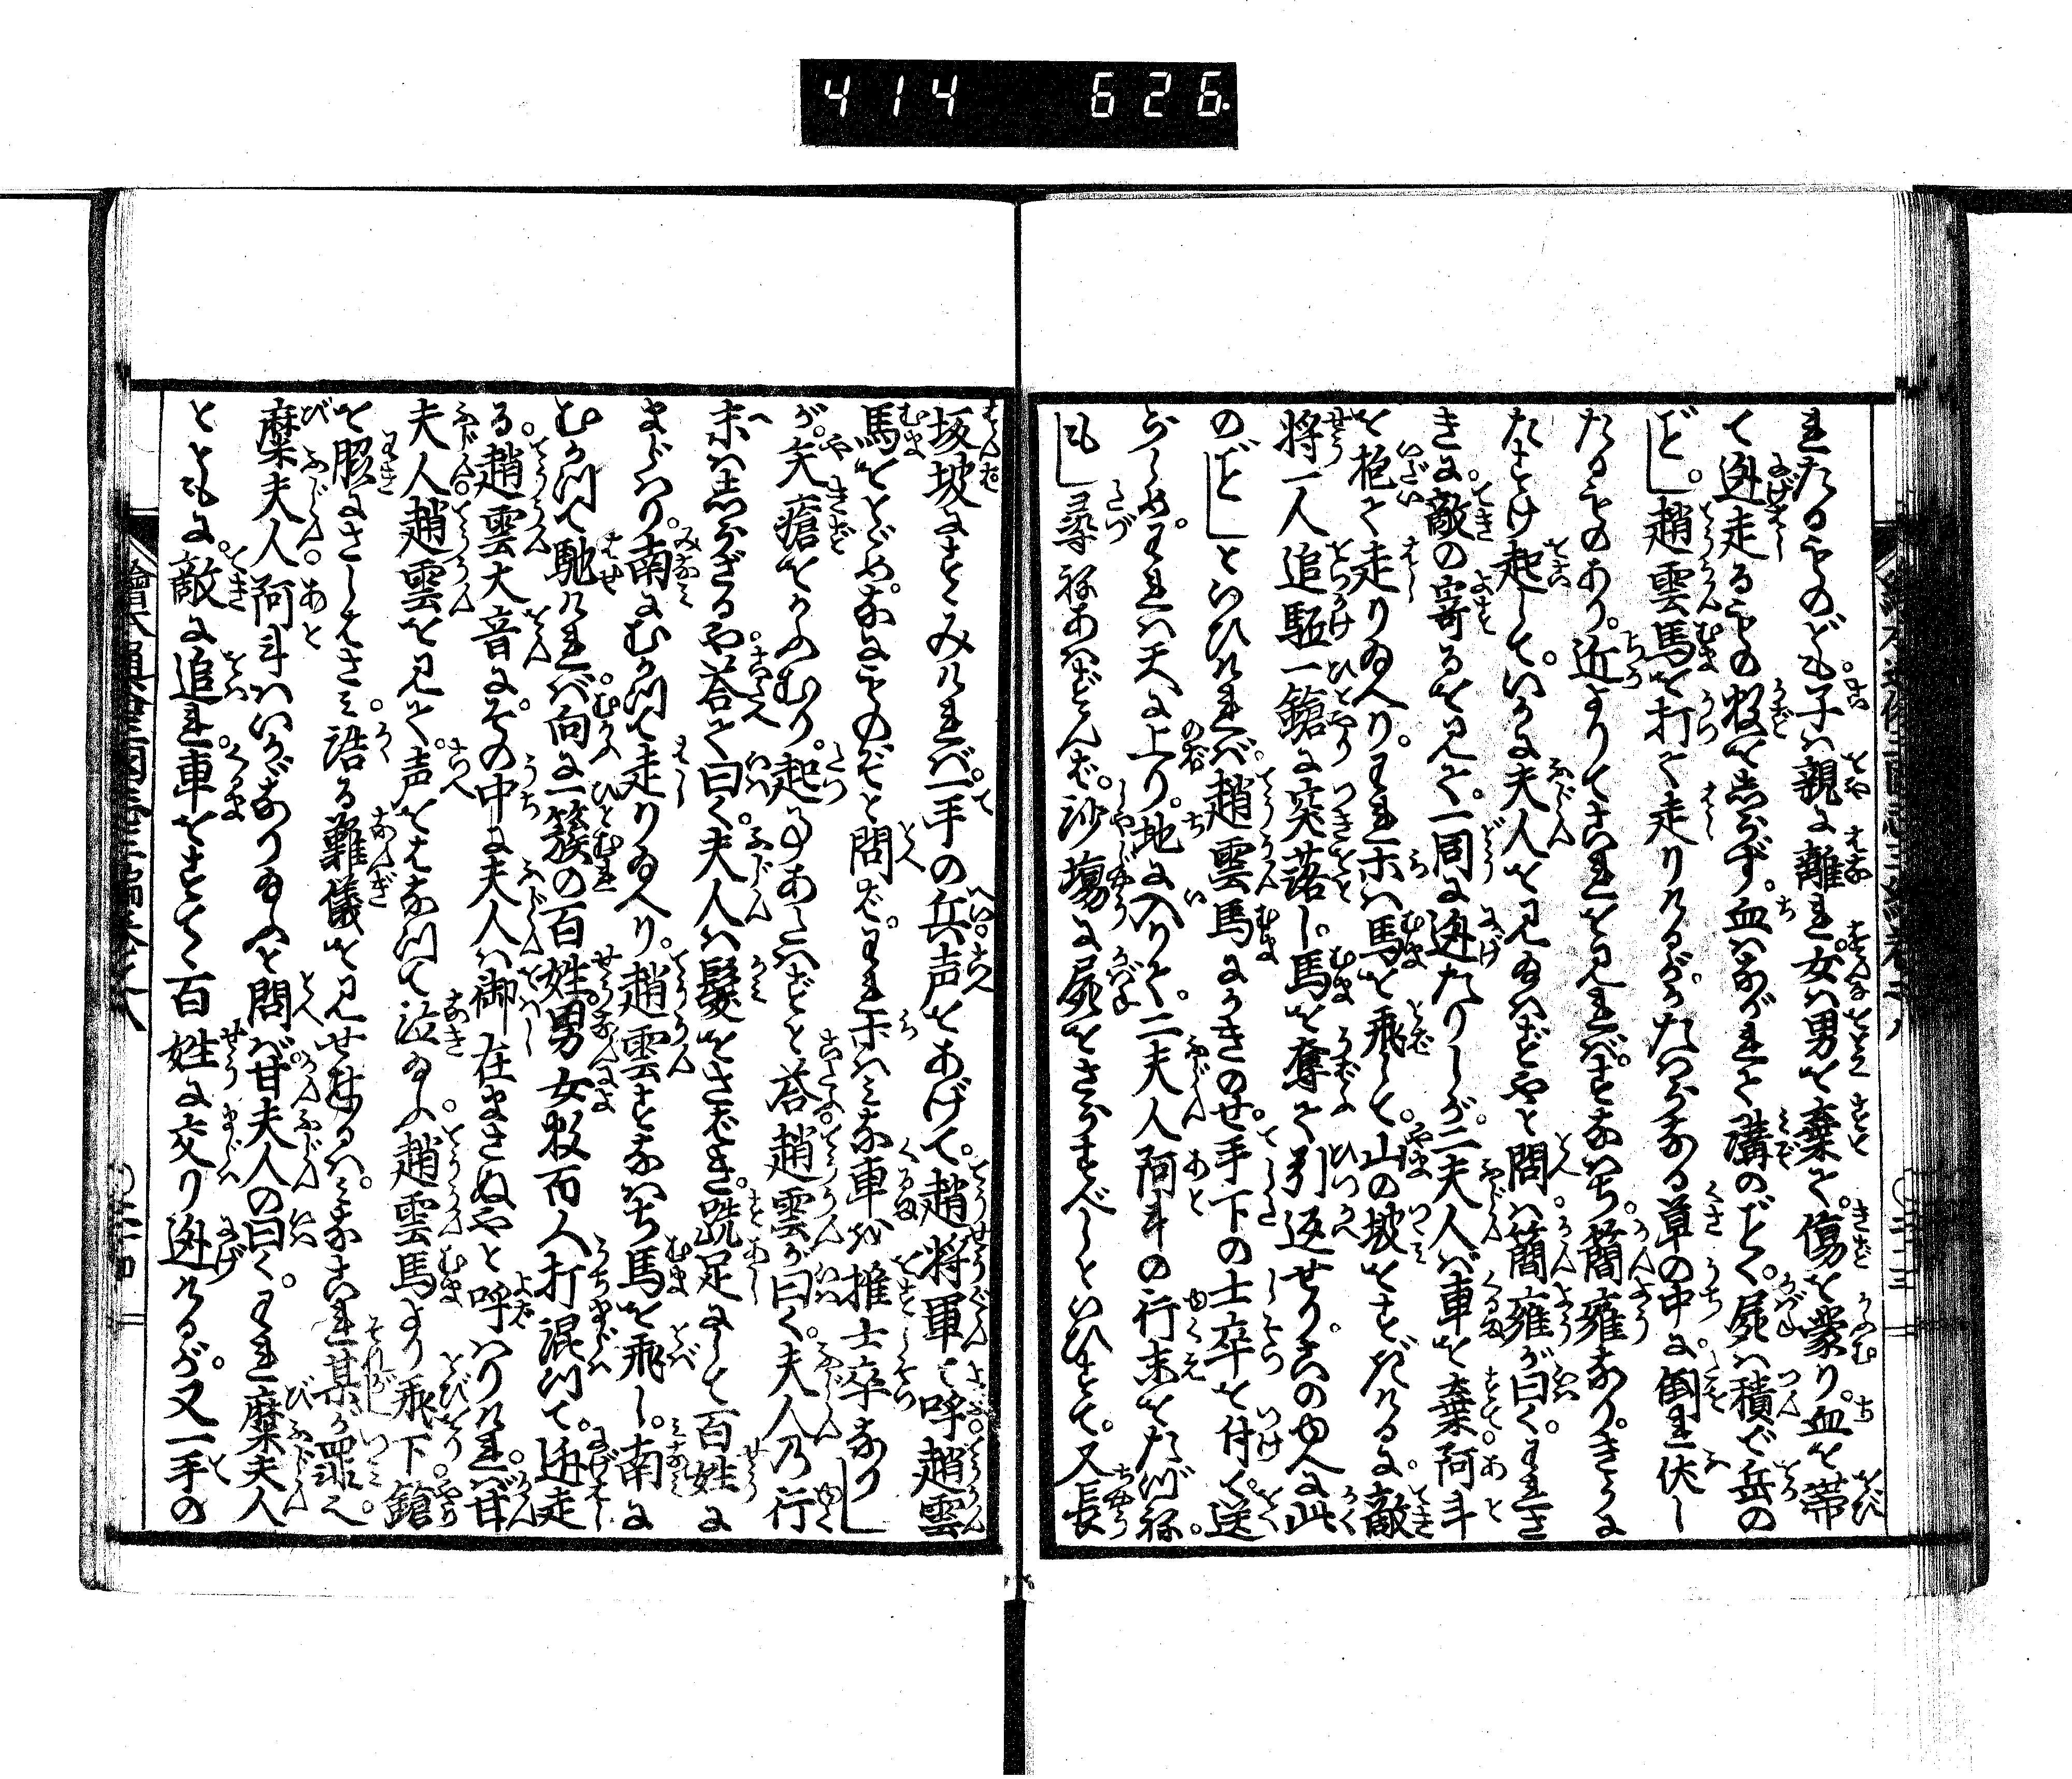 414 626
れたるものども。子ハ親に離れ女ハ男を棄て。傷を蒙り。血を帯
て迯走るもの数を志らず。血ハながれて溝のごとく。屍ハ積で岳の
ごとし。趙雲馬を打て走りけるが。たハらなる草の中に倒れ伏し
たるものあり。近よりてこれを見れバ。すなハち。簡雍なり。きうに
たすけ起して。いかに夫人を見給ハずやと問ハ簡雍が曰く。われさ
きに敵の寄るを見て。一同に迯たりしが。二夫人ハ車を棄阿斗
を抱て走り給へり。われホハ馬を飛して。山の坡をすぎけるに。敵
将一人追駈一鎗に突落し。馬を奪て引返せり。このゆへに此
のごとしといひけれバ。趙雲馬にかきのせ。手下の士卒を付て送
らしめ。われハ天に上り。地に入りて。二夫人阿斗の行末をたづね。
もし尋ねあハずんバ。沙塲に屍をさらすべしといひすて。又長
坂坡にすゝみけれバ。一手の兵声をあげて。趙将軍と呼趙雲
馬をとゞめ。なにものぞと問バ。われホハミな車を推士卒なり
が。矢瘡をかふむり。起事あたハずと荅趙雲が曰く。夫人乃行
末ハ志らざるや。荅て曰く。夫人ハ髪をさばき。跣足にして百姓に
まじハり。南にむかつて走り給へり。趙雲すなハち馬を飛し。南に
むかつて馳けれバ。向に一簇の百姓。男女数百人打混つて。迯走
る。趙雲大音に。その中に夫人ハ御在まさぬやと呼ハりけれバ。甘
夫人趙雲を見て。声をはなつて泣給ふ。趙雲馬より飛下鎗
を脇にさしはさミ。かく難儀を見せ奉るハ。ミなこれ某が罪也。
糜夫人阿斗ハいかゞなり給ふと問バ。甘夫人の曰く。われ糜夫人
とともに。敵に追れ。車をすてゝ百姓に交り迯けるが。又一手の